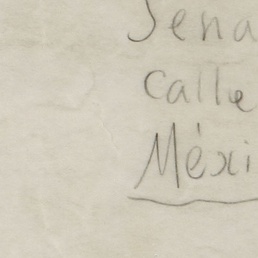 Sena
Calle
Méxi